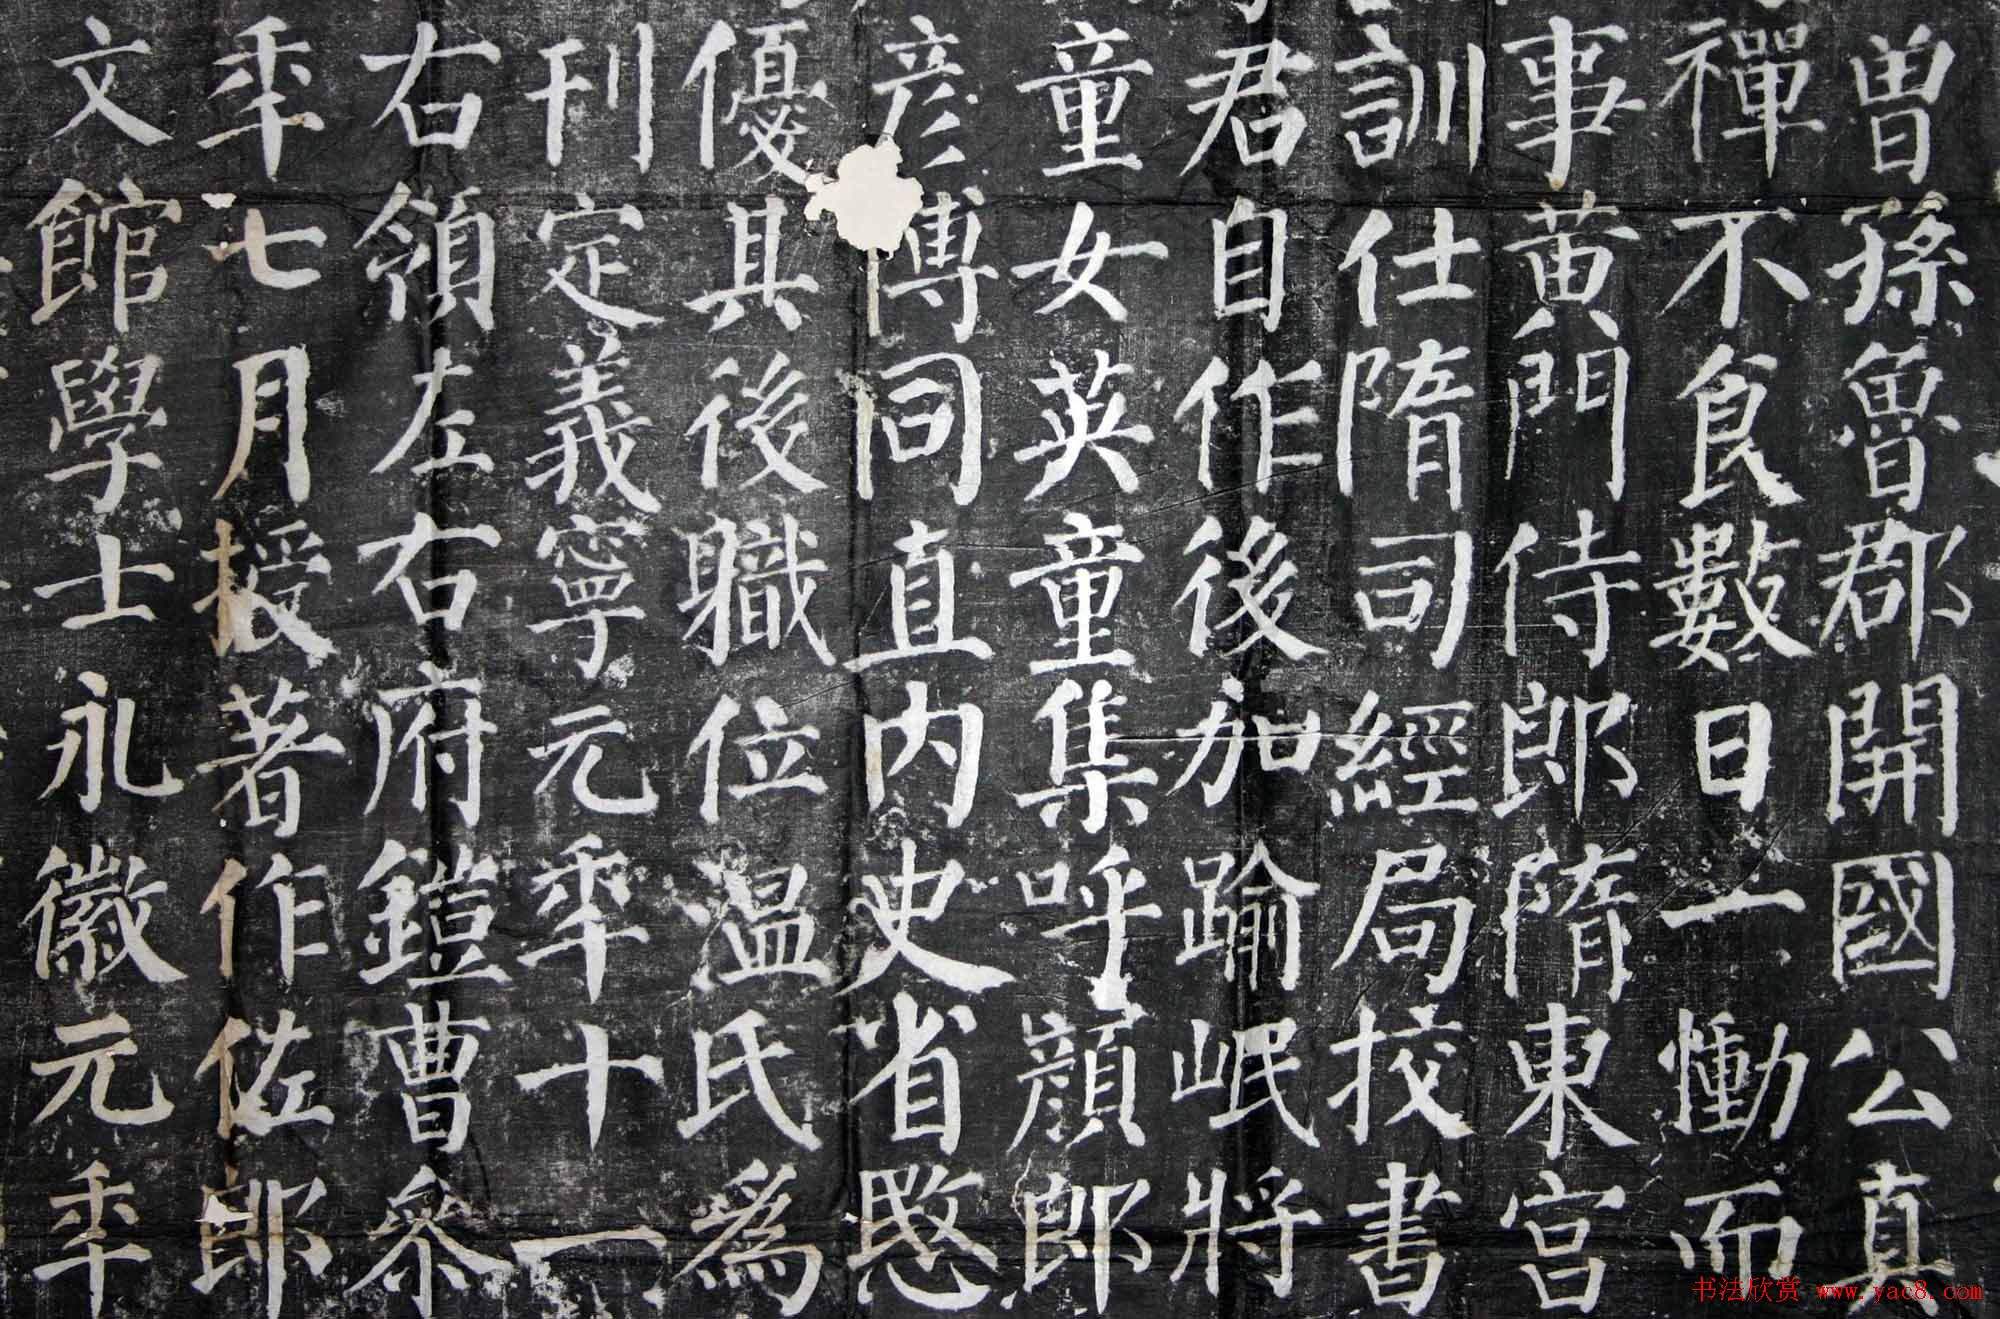 曾孫魯郡開國公真
禪不食數日一慟而
事黃門侍郎隋東宮
訓仕隋司經局挍書
君自作後加踰岷將
童女英童集呼顏郎
彥博同直内史省愍
優其後職位温氏為
刊定義寧元年十一
右領左右府鎧曹參
年七月授著作佐郎
文館學士永徽元年
书法欣赏 www.yac8.com